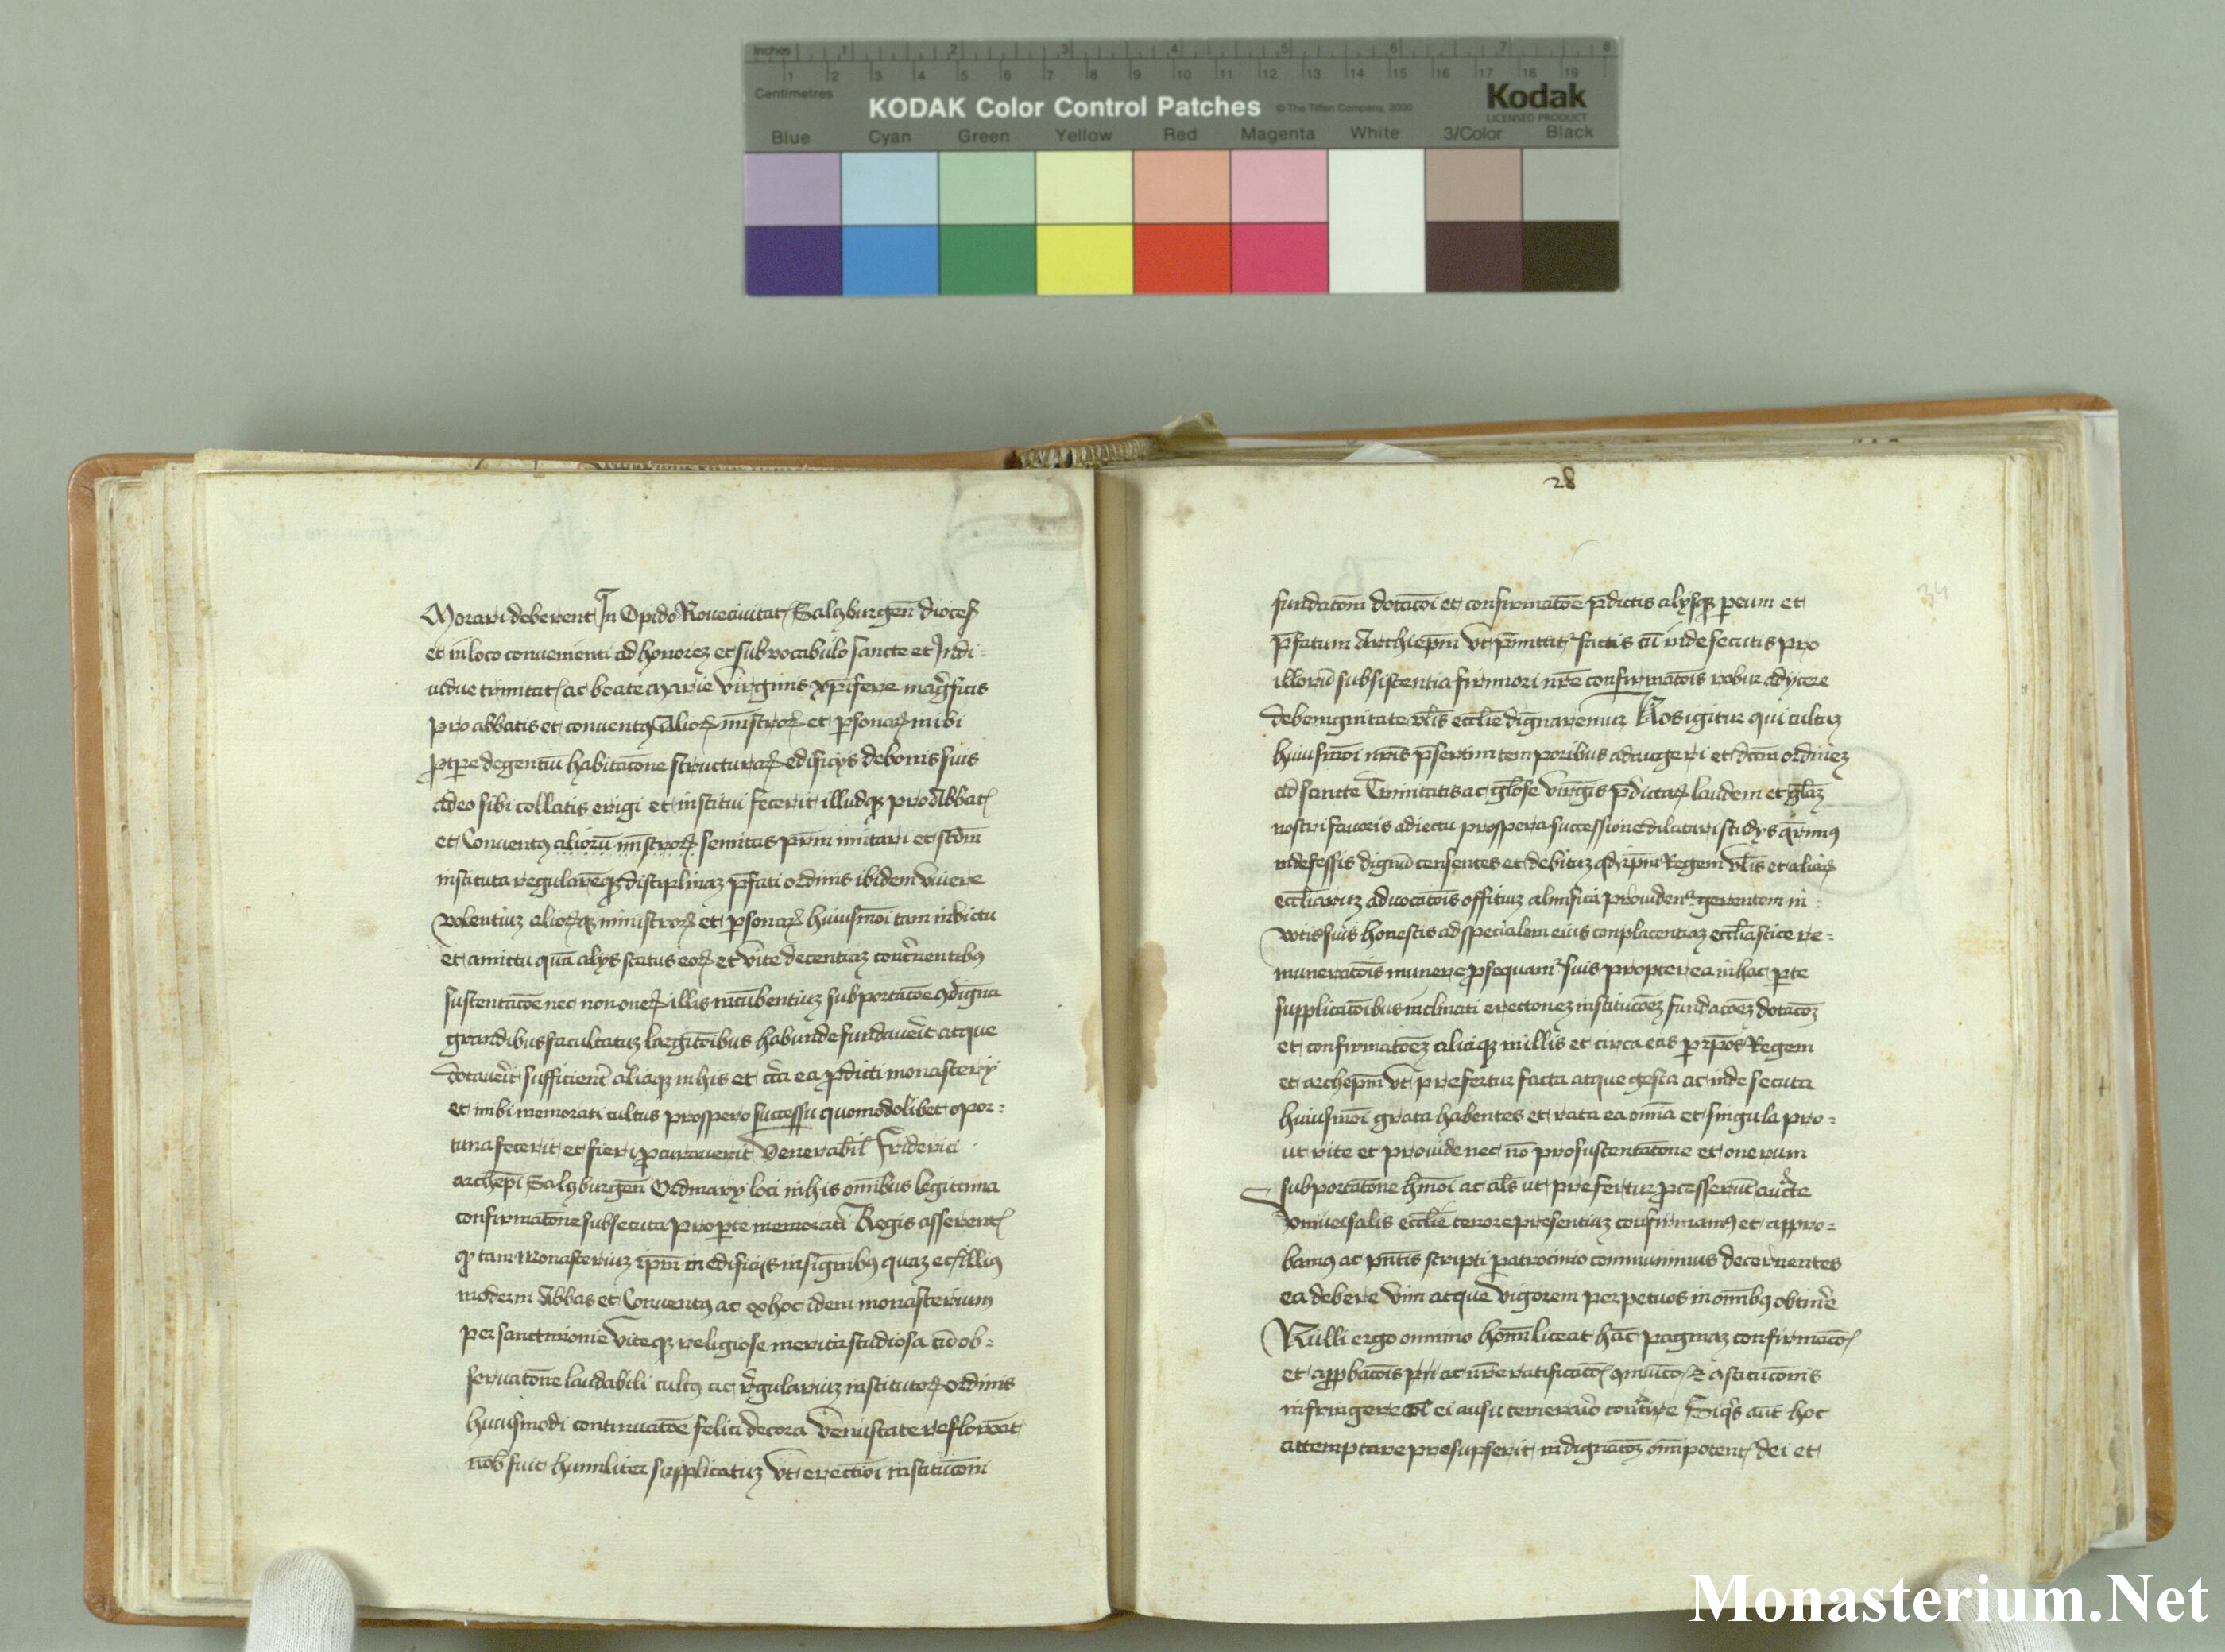 Inches 1 2 3 4 5 6 7 8
1 2 3 4 5 6 7 8 9 10 11 12 13 14 15 16 17 18 19
Centimetres
KODAK Color Control Patches © The Tiffen Company, 2000 Kodak
LICENSED PRODUCT
Blue Cyan Green Yellow Red Magenta White 3/Color Black
Morari deberent In Opido Novecivitat Salczburgen dioces
et in loco convenienti ad honorez et sub vocabulo sancte et Indi-
uidue trinitat ac beate marie Virginis xpifere magnficis
pro abbatis et conventq alior mistror et psonar inibi
ptpe degentiu habitacone structurar edificys de bonis suis
adeo sibi collatis erigi et institui fecerit illudq pro Abbat
et Conventq aliorum mistror semitas prim imitari et scdm
instituta regulareq disciplinaz pfati ordinis ibidem vivere
volentiuz aliorq ministror et psonar huiusmoi tam in victu
et amictu qua alys status eor et vite decentiaz concrnentibq
sustentacoe nec non oner illis incubentiuz subportacoe 9digna
grandibus facultatuz largitoibus habunde fundaverit atque
dotaverit sufficient aliaq in his et circa ea pdicti monastery
et inibi memorati cultus prospero successu quomodolibet opor:
tuna fecerit et fieri pcuraverit Venerabil Friderici
archepi Salczburgen Ordinary loci in his omibus legitima
confirmatone subsecuta pro pte memorati Regis asserent
q tam monasteriuz ipm in edificys insignibq quaz et illiq
moderni Abbas et Conventq ac ex hoc idem monasterium
per sanctimonie Viteq religiose merita studiosa cu ob-
servatone laudabili cultq ac regulariuz institutor ordinis
huiusmodi continuatoe felici decora Venustate refloreat
nob fuit humiliter supplicatuz Vt erectioi instituconi
28
34
fundatoni dotacoi et confirmatoe pdictis alysq p eum et
pfatum Archiepm Vt pmittit factis cu inde secutis pro
illoru subsistentia firmiori nre confirmatois robur adycere
de benignitate vlis ecclie dignaremur Nos igitur qui cultuz
huiusmoi nris psertim temporibus adaugeri et dcm ordinez
ad sancte Trinitatis ac glose Virgis pdictar laudem et glaz
nostri favoris adiectu prospera successione dilatari studys qrimq
indefessis dignu censentes et debituz qd ipm Regem vlis et aliar
eccliaruz advocatois offitiuz almifica providen gerentem in
votis suis honestis ad specialem eius complacentiaz eccliastice re-
muneratois munere psequam suis propterea in hac pte
supplicatoibus inclinati erectonez institucoez fundacoez dotacoz
et confirmatoez aliaq in illis et circa eas p ipos Regem
et archepm Vt prefertur facta atque gesta ac inde secuta
huiusmoi grata habentes et rata ea omia et singula pro-
ut rite et provide nec no pro sustentatone et onerum
subportatone hmoi ac als ut prefertur pcesserut aucte
Vniversalis ecclie tenore presentiuz confirmamq et appro-
bamq ac pntis scripti patrocinio communimus decernentes
ea debere Vim atque Vigorem perpetuos in omibq obtinere
Nulli ergo omnino homi liceat hac paginaz confirmaco
et appbatois ac nre ratificaco et 9stitucionis
infringere vel ei ausu temerario contraire Siqs aut hoc
attemptare presupserit indignatoz omipotent dei et
Monasterium.Net